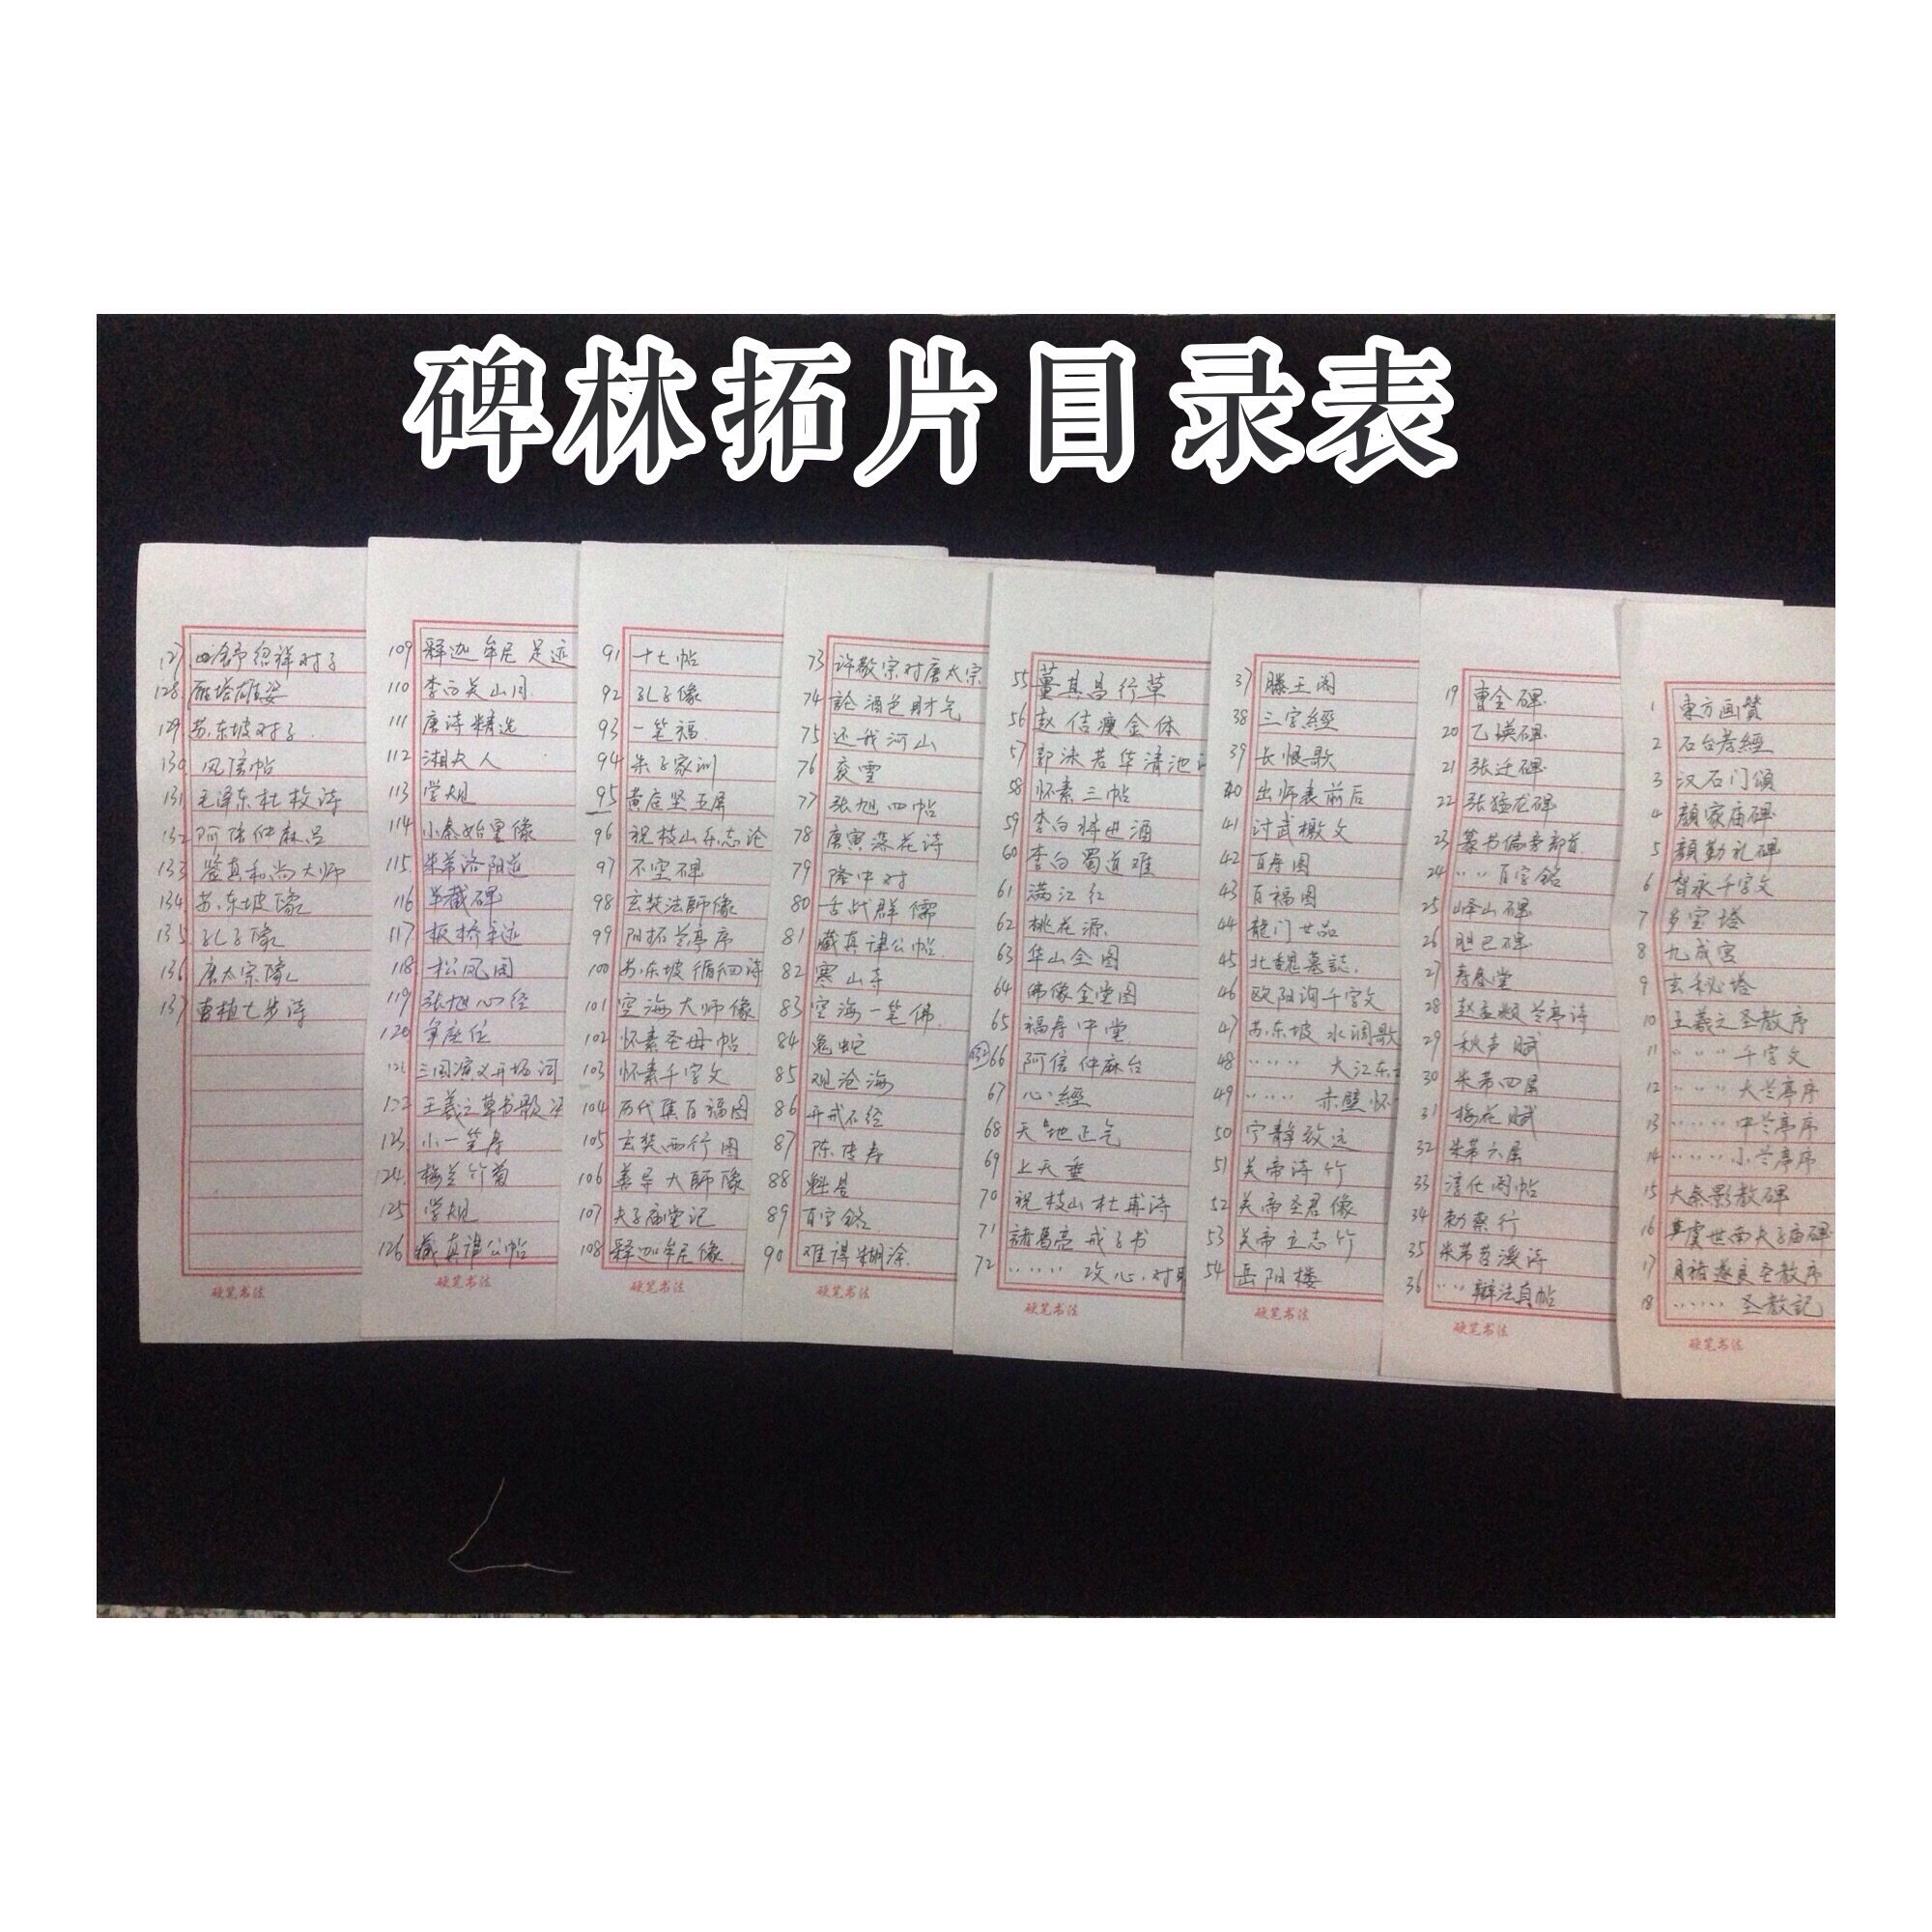 碑林拓片目录表
1 東方画贊
2 石台孝經
3 汉石门頌
4 顏家庙碑
5 顏勤礼碑
6 智永千字文
7 多宝塔
8 九成宫
9 玄秘塔
10 王羲之圣教序
11 〃 〃 〃 千字文
12 〃 〃 〃 大兰亭序
13 〃 〃 〃 中兰亭序
14 〃 〃 〃 小兰亭序
15 大秦影教碑
16 虞世南夫子庙碑
17 褚遂良圣教序
18 〃 〃 〃 圣教記
硬笔书法
19 曹全碑
20 乙瑛碑
21 张迁碑
22 张猛龙碑
23 篆书偏旁部首
24 〃 〃 百字铭
25 峄山碑
26 胆巴碑
27 寿春堂
28 赵孟頫兰亭诗
29 秋声赋
30 米芾四屏
31 梅花赋
32 米芾六屏
33 淳化阁帖
34 勅蔡行
35 米芾苕溪诗
36 〃 〃 辩法真帖
硬笔书法
37 滕王阁
38 三字經
39 长恨歌
40 出师表前后
41 讨武檄文
42 百寿图
43 百福图
44 龍门廿品
45 北魏墓誌
46 欧阳询千字文
47 苏东坡 水调歌
48 〃 〃 〃 大江东
49 〃 〃 〃 赤壁怀
50 宁静致远
51 关帝诗竹
52 关帝圣君像
53 关帝立志竹
54 岳阳楼
硬笔书法
55 董其昌行草
56 赵佶瘦金体
57 郭沫若华清池
58 怀素三帖
59 李白将进酒
60 李白蜀道难
61 满江红
62 桃花源
63 华山全图
64 佛像金堂图
65 福寿中堂
66 阿倍仲麻吕
67 心經
68 天地正气
69 上天垂
70 祝枝山杜甫诗
71 諸葛亮戒子书
72 〃 〃 〃 攻心对联
硬笔书法
73 许敬宗对唐太宗
74 論酒色財气
75 还我河山
76 衮雪
77 张旭四帖
78 唐寅落花诗
79 隆中对
80 舌战群儒
81 藏真律公帖
82 寒山寺
83 空海一笔佛
84 龟蛇
85 观沧海
86 开戒石经
87 陈抟寿
88 魁星
89 百字銘
90 难得糊涂
硬笔书法
91 十七帖
92 孔子像
93 一笔福
94 朱子家训
95 黄庭坚五屏
96 祝枝山乐志论
97 不空碑
98 玄奘法師像
99 阳拓兰亭序
100 苏东坡循徊诗
101 空海大师像
102 怀素圣母帖
103 怀素千字文
104 历代集百福图
105 玄奘西行图
106 善导大師像
107 夫子庙堂记
108 释迦牟尼像
硬笔书法
109 释迦牟尼足迹
110 李白关山月
111 唐诗精选
112 湘夫人
113 学规
114 小秦始皇像
115 米芾洛阳道
116 半截碑
117 板桥手迹
118 松风阁
119 张旭心经
120 争座位
121 三国演义开场词
122 王羲之草书歌诀
123 小一笔寿
124 梅兰竹菊
125 学规
126 藏真律公帖
硬笔书法
127 舍予纪祥对子
128 雁塔雄姿
129 苏东坡对子
130 风信帖
131 毛泽东杜牧诗
132 阿倍仲麻吕
133 鉴真和尚大师
134 苏东坡像
135 孔子像
136 唐太宗像
137 曹植七步诗
硬笔书法